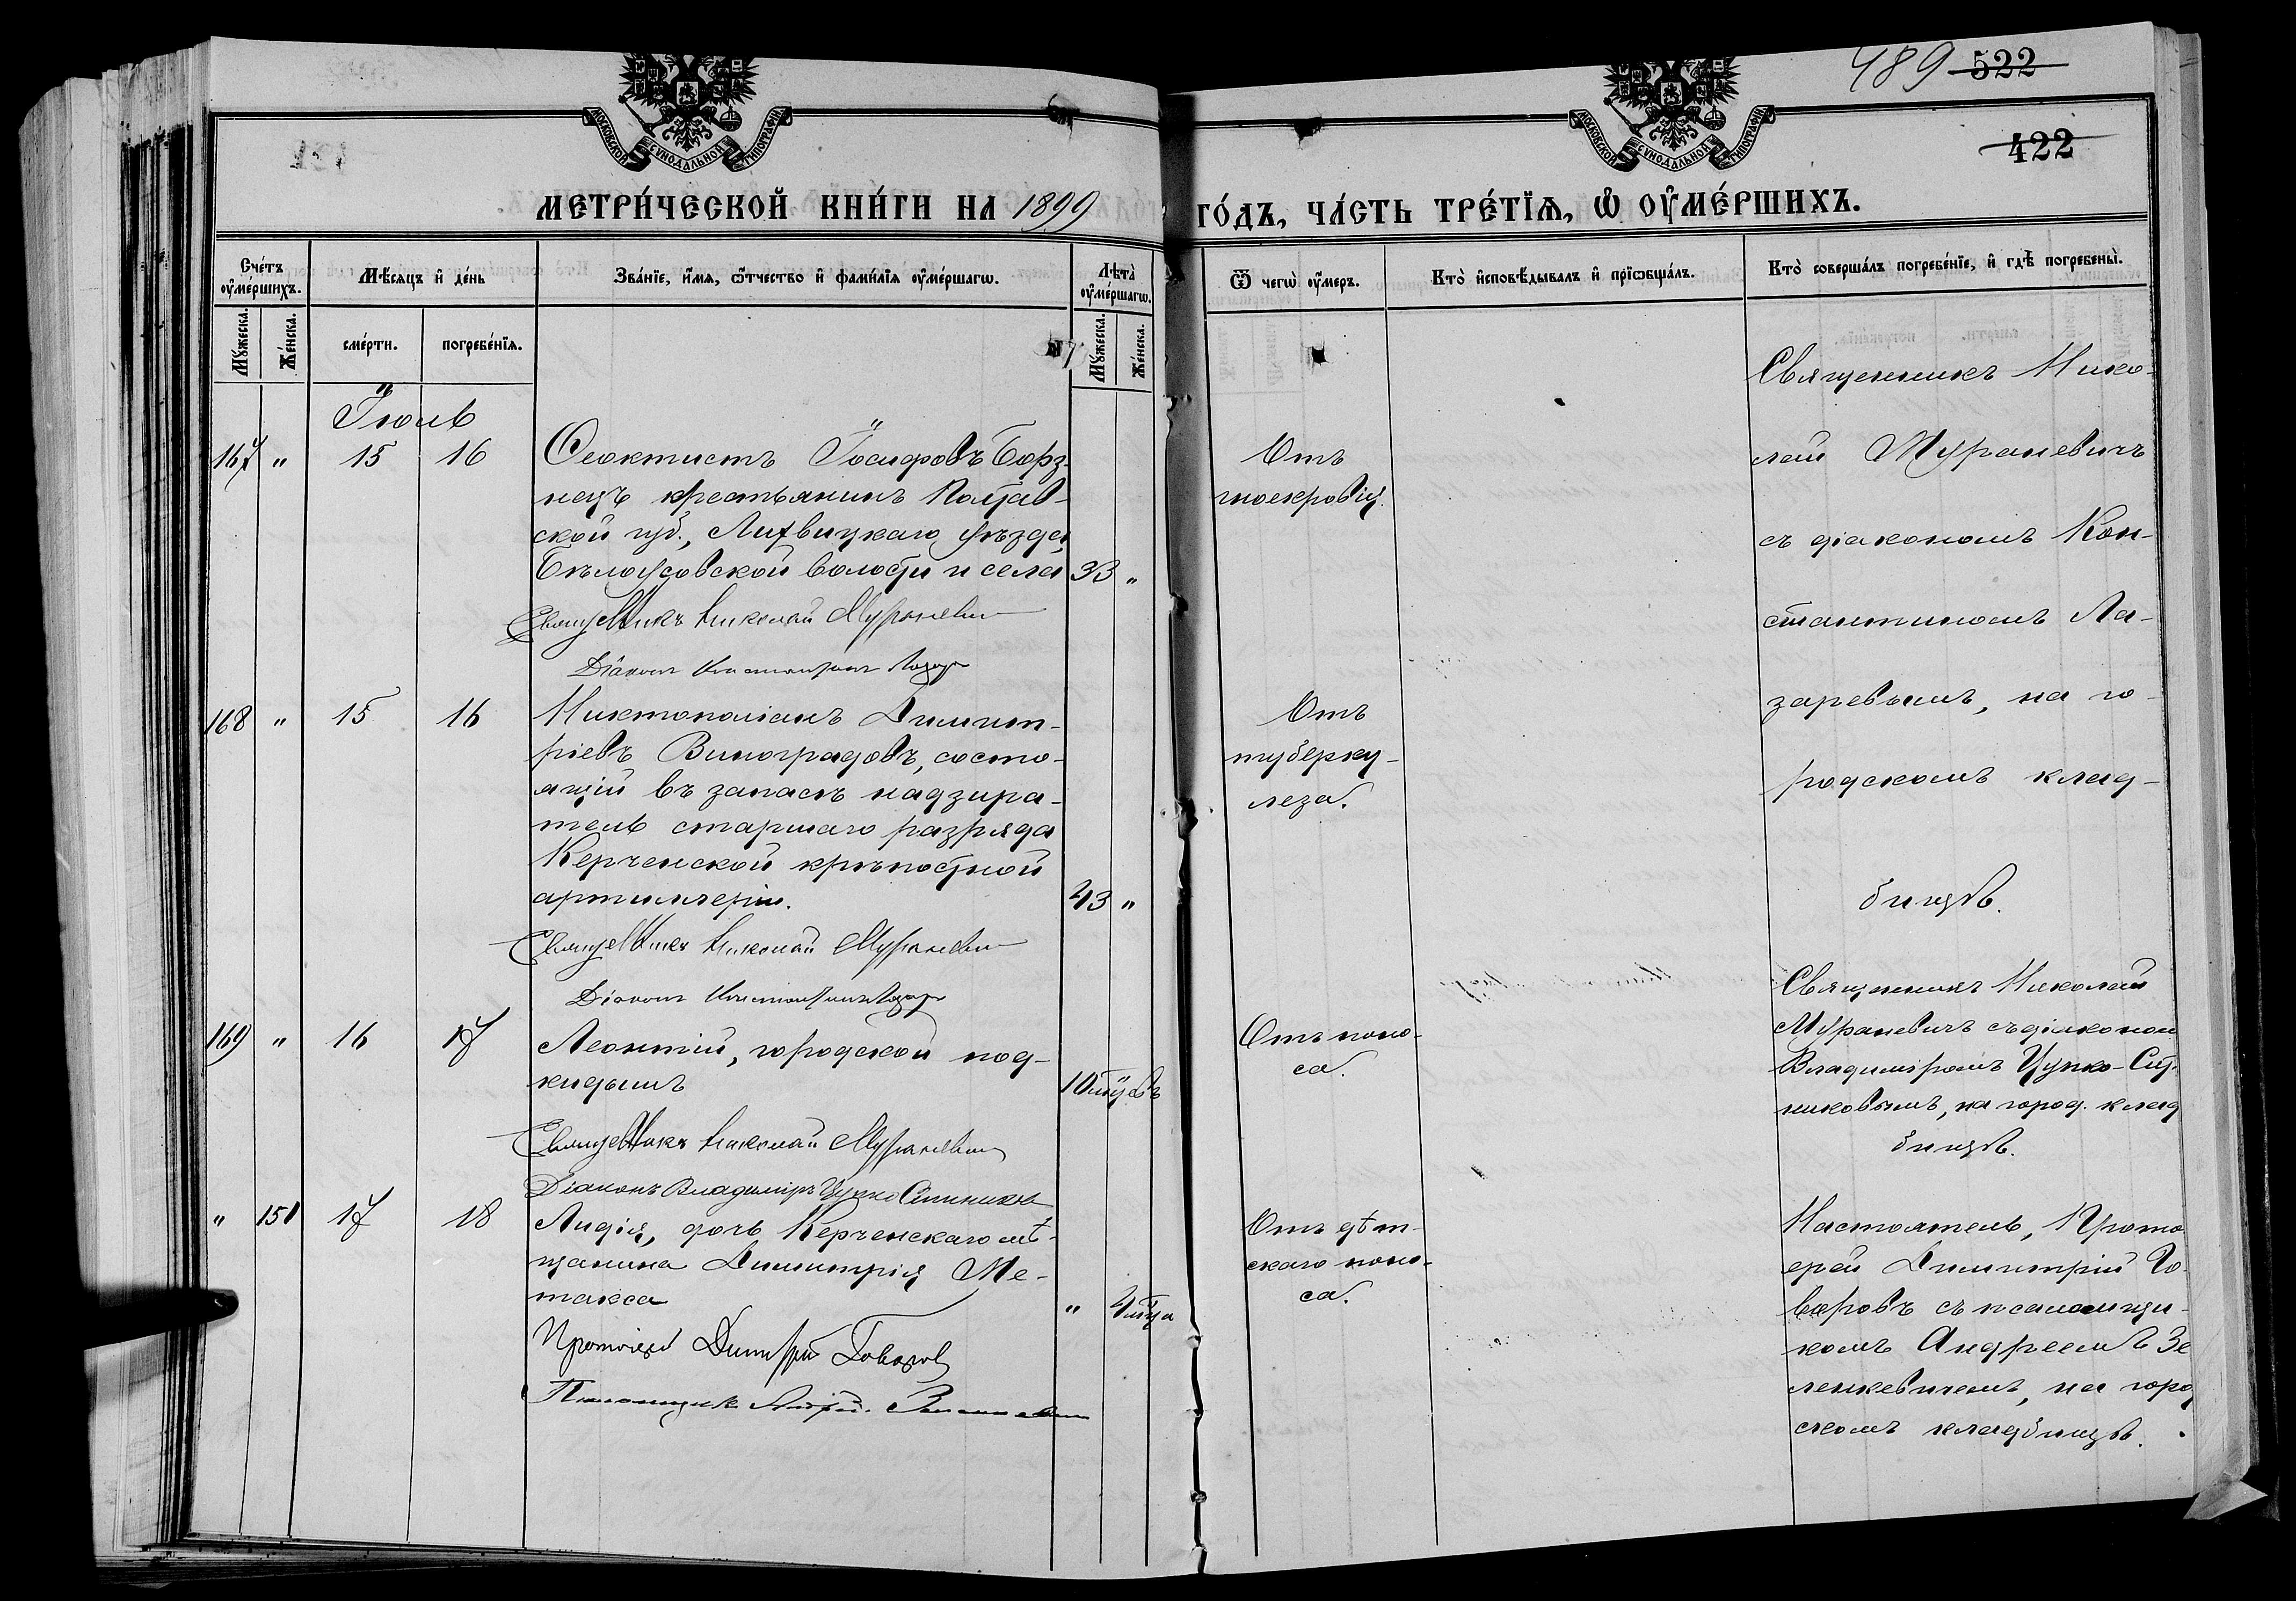 489 522
422
МОСКОВСКОЙ СѴНОДАЛЬНОЙ ТИПОГРАФІИ
МОСКОВСКОЙ СѴНОДАЛЬНОЙ ТИПОГРАФІИ
МЕТРИ́ЧЕСКОЙ КНИ́ГИ НА 1899
ГО́ДЪ, ЧА́СТЬ ТРЕ́ТЇѦ, Ѡ ОУМЕ́РШИХЪ.
Сче́тъ оуме́ршихъ.
Мѣ́сяцъ и де́нь
Зва́нїе, и҆́мѧ, ѻ҆́тчество и҆ фами́лїѧ оуме́ршагѡ.
Лѣта̀ оуме́ршагѡ.
Ѿ чегѡ̀ оу́меръ.
Кто̀ и҆сповѣ́дывалъ и҆ прїѡбща́лъ.
Кто̀ соверша́лъ погребе́нїе, и҆ гдѣ̀ погребены̀.
Мꙋ́жеска.
Же́нска.
сме́рти.
погребе́нїѧ.
Мꙋ́жеска.
Же́нска.
Іюль
167 " 15 16
Ѳеоктистъ Іосифовъ Борз-
нецъ крестьянинъ Полтав-
ской губ., Лихвицкаго уѣзда,
Бѣлоусовской волости и села 33 "
Священникъ Николай Мураневич
Діаконъ Константинъ Лазар
Отъ
гноекровія.
Священникъ Нико-
лай Мураневичъ
съ діакономъ Кон-
стантиномъ Ла-
заревымъ, на го-
родскомъ клад-
бищѣ.
168 " 15 16
Никтополіанъ Димит-
ріевъ Виноградовъ, состо-
ящій въ запасѣ надзира-
тель старшаго разряда
Керченской крѣпостной
артиллеріи. 43 "
Священникъ Николай Мураневич
Діаконъ Константинъ Лазар
Отъ
туберку-
леза.
169 " 16 17
Леонтій, городской под-
кидышъ 10 мцевъ
Священникъ Николай Мураневич
Діаконъ Владиміръ Цупко Ситников
Отъ поно-
са.
Священникъ Николай
Мураневичъ съ діаконом
Владиміромъ Цупко-Сит-
никовымъ, на город. клад
бищѣ.
" 151 17 18
Лидія, дочь Керченскаго мѣ-
щанина Димитрія Ме-
такса " 4 мца
Протоіерей Димитрій Говоров
Псаломщик Андрей
Отъ дѣт-
скаго поно-
са.
Настоятель, Прото
ерей Димитрій Го-
воровъ съ псаломщи-
комъ Андреемъ Зе
ленкевичемъ, на город
скомъ кладбищѣ.